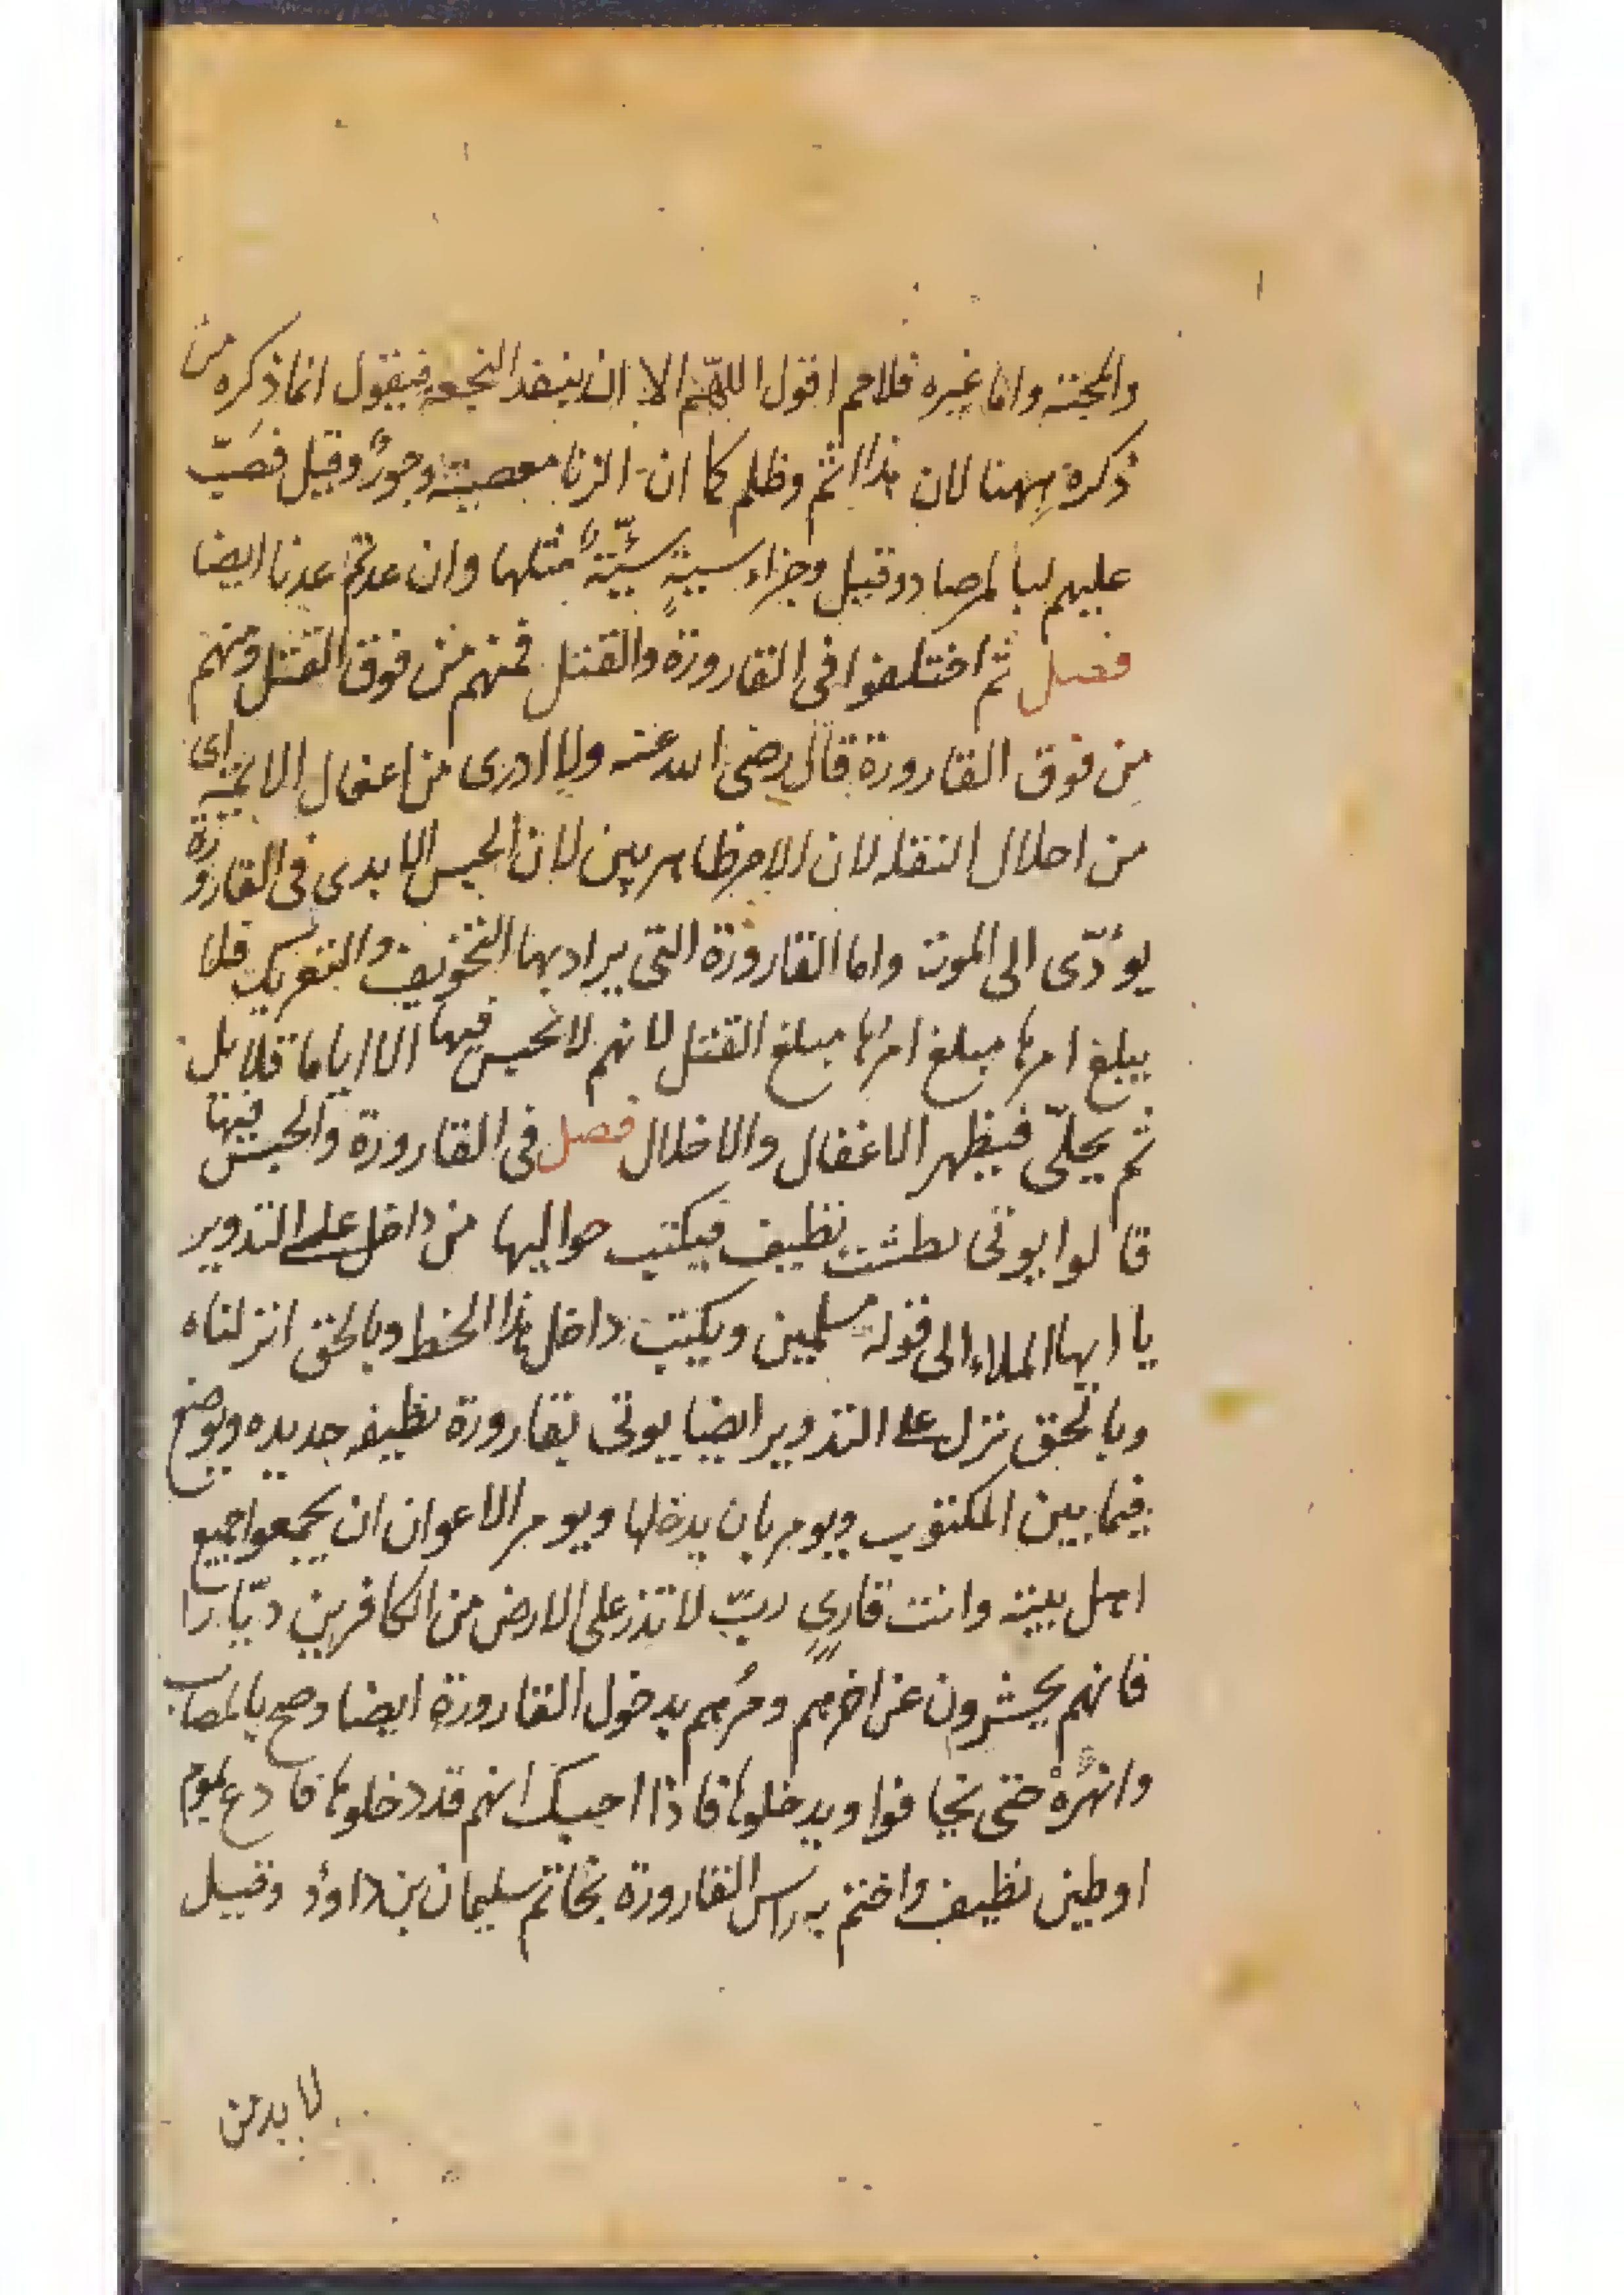 والمجنة واما غيره فلاحم اقول اللهم الا ان ينفذ النجعه فيقول انما ذكره من
ذكره ههنا لان هذا اثم وظلم كما ان الزنا معصية وجورٌ وقيل فصبّ
عليهم لبالمرصاد وقيل وجزاء سيئةٍ سيّئةٌ مثلها وان عدتم عدنا ايضا
فصل ثم اختلفوا في القارورة والقتل فمنهم من فوق القتل ومنهم
من فوق القارورة قال رضى الله عنه ولا ادرى من اغفال الايمة اى
من اخلال النقلة لان الامر ظاهر بين لان الحبس الابدى فى القارورة
يؤدّى الى الموت واما القارورة التى يراد بها التخويف والتعريك فلا
يبلغ امرها مبلغ امرها مبلغ القتل لانهم لا تحبس فيها الا اياما قلايل
ثم يخلّى فيظهر الاغفال والاخلال فصل فى القارورة والحبس فيها
قالوا يوتى بطشت نظيف فيكتب حواليها من داخل على التدوير
يا ايها الملاء الى قوله مسلمين ويكتب داخل هذا الخط وبالحق انزلناه
وبالحق نزل على التدوير ايضا يوتى بقارورة نظيفه جديده ويوضع
فيما بين المكتوب ويومر بان يدخلها ويومر الاعوان ان يجمعوا جميع
اهل بيته وانت قارىٍ ربّ لا تذر على الارض من الكافرين ديّارا
فانهم يحشرون عن اخرهم ومرهم بدخول القارورة ايضا وصح بالمصاب
وانهره حتى يخافوا ويدخلوها فاذا اجبك انهم قد دخلوها فادع بموم
او طين نظيف واختم به راس القارورة بخاتم سليمان بن داوٗد وقيل
لا بد من